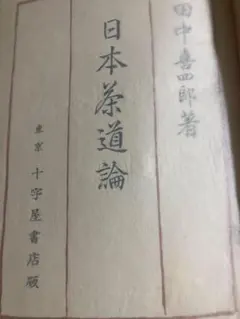 田中喜四郎著
日本茶道論
東京 十字屋書店版